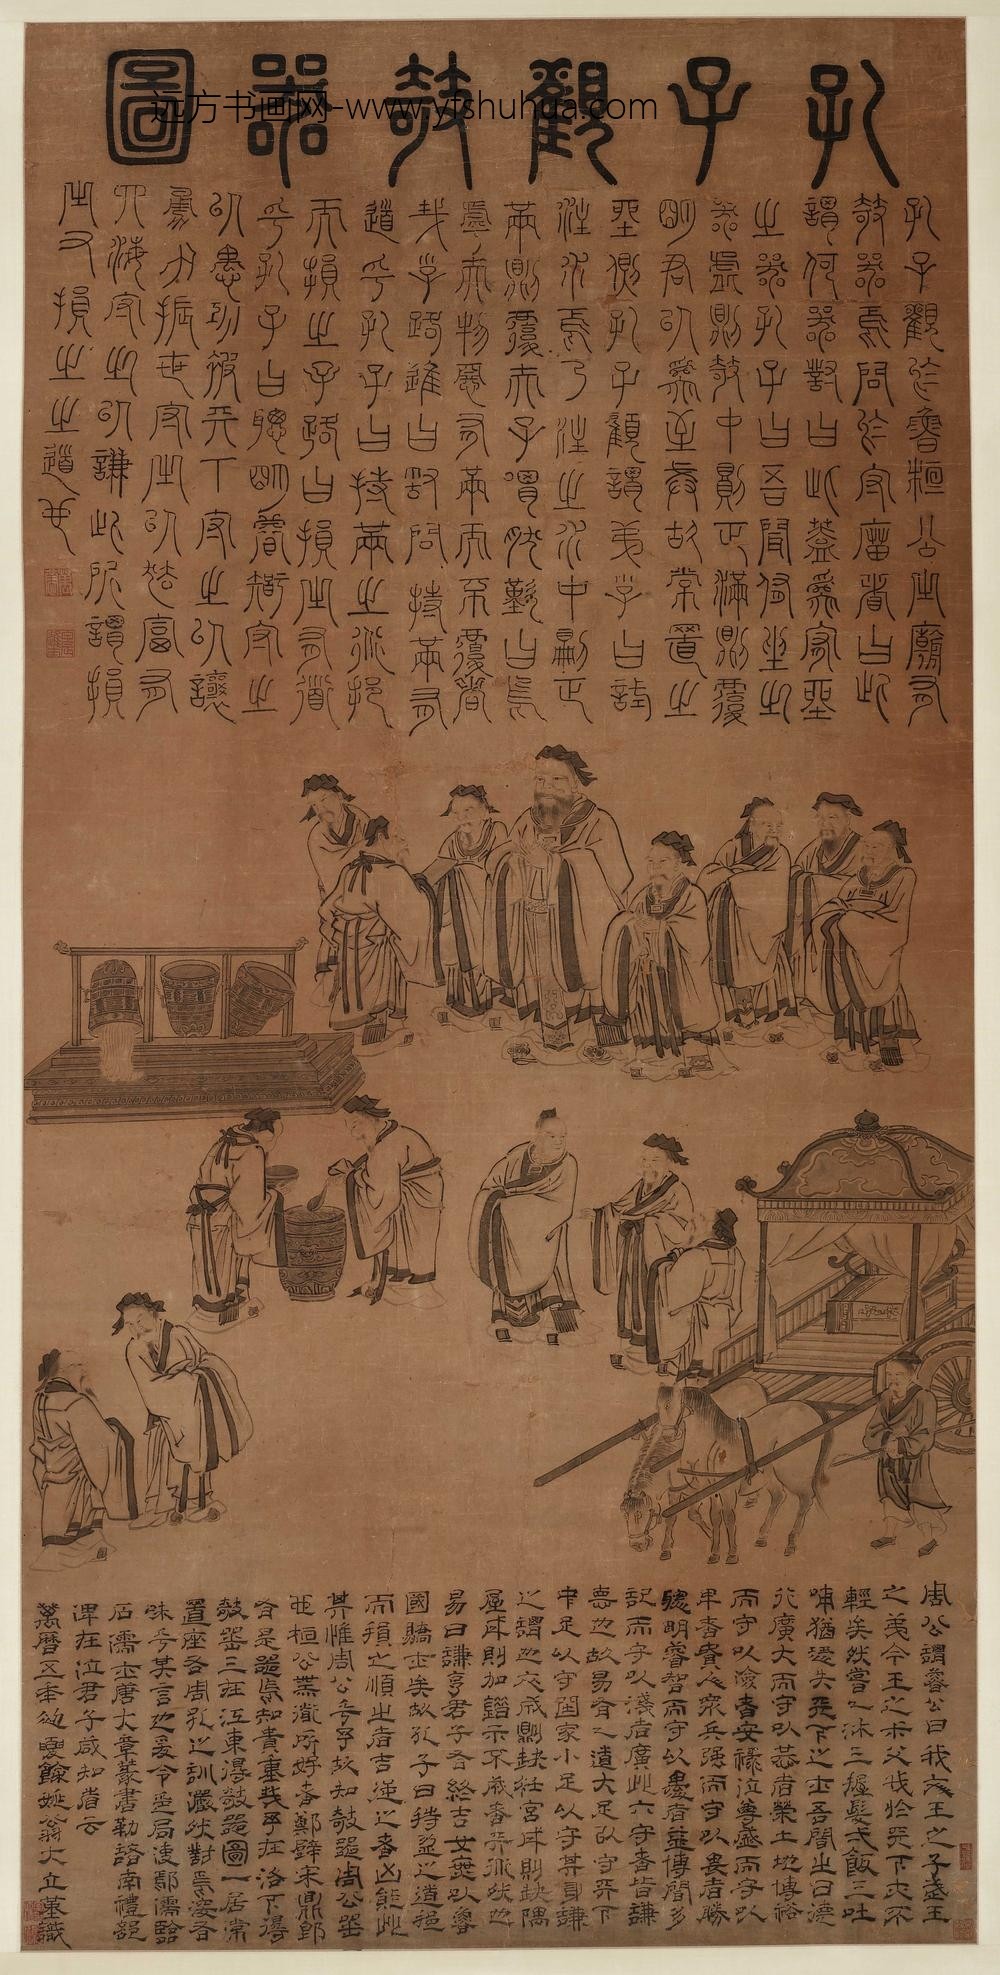 孔子觀攲器圖
远方书画网-www.yfshuhua.com
孔子觀於魯桓公之廟有
攲器焉問於守廟者曰此
謂何器對曰此蓋爲宥坐
之器孔子曰吾聞宥坐之
器虛則攲中則正滿則覆
明君以爲至誡故常置之
坐側孔子顧謂弟子曰試
注水焉乃注之水中則正
滿則覆夫子喟然歎曰嗚
虖夫物惡有滿而不覆者
哉子路進曰敢問持滿有
道乎孔子曰持滿之術挹
而損之子路曰損之有道
乎孔子曰聰明睿智守之
以愚功被天下守之以讓
勇力振世守之以怯富有
四海守之以謙此所謂損
之又損之之道也
周公謂魯公曰我文王之子武王
之弟今王之叔父我於天下亦不
輕矣然嘗一沐三握髮弌飯三吐
哺猶恐失天下之士吾聞之曰德
行廣大而守以恭者榮土地博裕
而守以儉者安祿位尊盛而守以
卑者貴人衆兵强而守以畏者勝
聰明睿智而守以愚者益博聞多
記而守以淺者廣此六守者皆謙
德也故易有一道大足以守天下
中足以守國家小足以守其身謙
之謂也衣成則缺衽宮成則缺隅
屋成則加錯示不成者天道然也
易曰謙亨君子有終吉女無以魯
國驕士矣故孔子曰持盈之道挹
而損之順之者吉逆之者凶能此
其惟周公乎予故知攲器周公
也桓公所好者鄭璧宋鼎
有是器焉知貴重哉予在洛下得
攲器三在江東得攲器圖一居常
置座右周孔之訓儼然對焉深有
味乎其言也爰令
石濡士唐大章篆書勒諸南禮
俾在位君子咸知省云
萬曆五年夏餘姚翁大立識